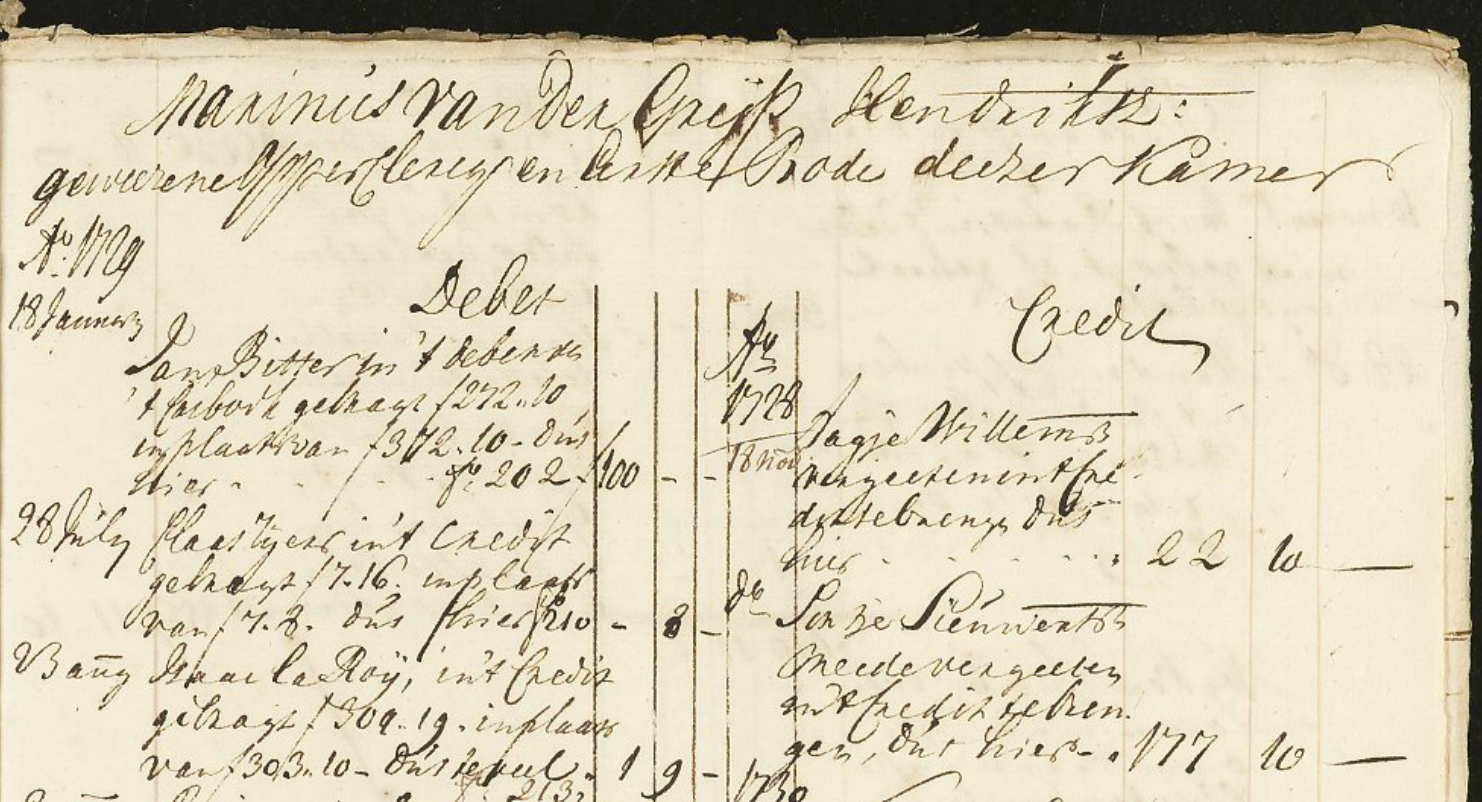 Marinus van Der Grijp Hendriksz:
geweezene Opper Clercq en Eerste Bode deezer Kamer
Ao. 1729
18 January
Debet
Jan Bitter in 't debet van
't Casboek gebragt f 272.. 10
in plaats van f 372. 10 - dus
hier - . . . fo. 202 - f 100 - -
28 July Claas Tysz in't Credit
gebragt f 7.. 16. in plaats
van f 7. 8. dus hier fo 210 - 8 -
23 aug Isaac la Roÿ, in't Credit
gebragt f 309.. 19. in plaats
van f 303.. 10 - dus te veel - 1 9 -
fo. 213:
Credit
Ao
1728
18 Nov
Jagje Willems
vergeeten in't Cre-
dit te brengen dus
hier . . . . . 22 10 —
do Sontje Sieuwerts
meede vergeeten
in't Credit te bren
gen, dus hier - . 177 10 —
1730